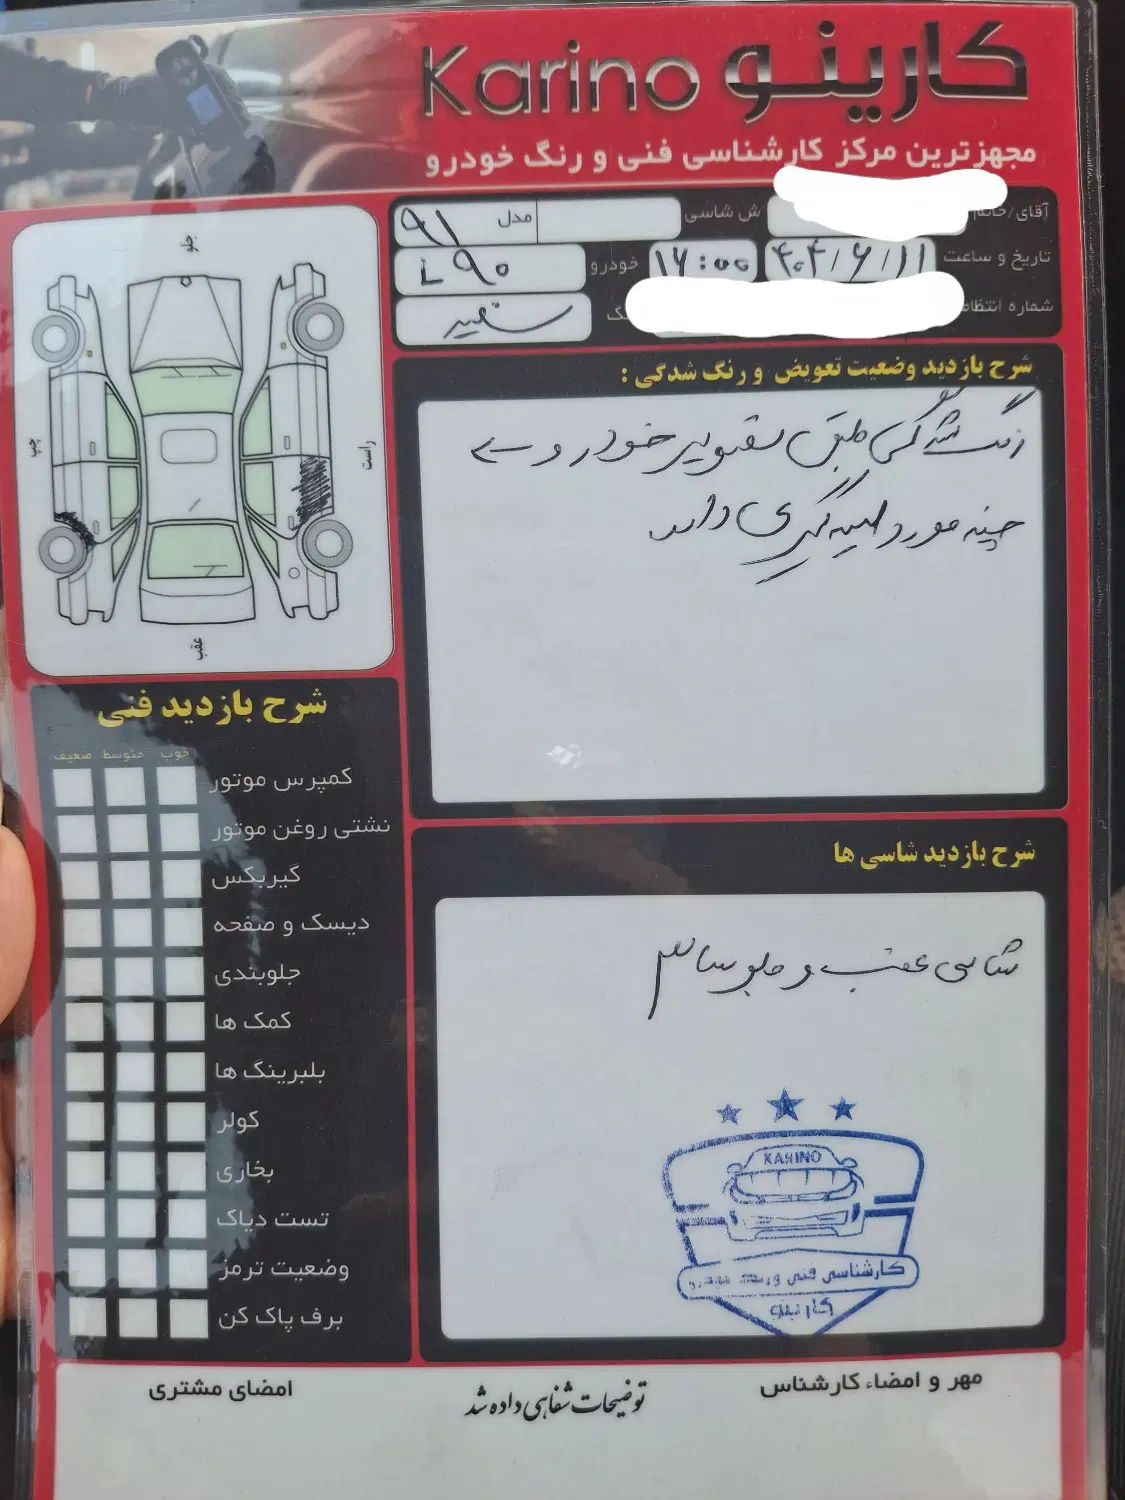 کارینو Karino
مجهزترین مرکز کارشناسی فنی و رنگ خودرو
آقای/خانم
ش شاسی
مدل ۹۱
تاریخ و ساعت ۴۰۴/۶/۱۱ ۱۶:۰۰
خودرو L۹۰
شماره انتظامی
رنگ سفید
جلو
چپ
راست
عقب
شرح بازدید وضعیت تعویض و رنگ شدگی :
رنگ شدگی طبق تصویر خودرو
چند مورد لیسه گیری دارد
شرح بازدید فنی
خوب متوسط ضعیف
کمپرس موتور
نشتی روغن موتور
گیربکس
دیسک و صفحه
جلوبندی
کمک ها
بلبرینگ ها
کولر
بخاری
تست دیاگ
وضعیت ترمز
برف پاک کن
شرح بازدید شاسی ها
شاسی عقب و جلو سالم
KARINO
کارشناسی فنی و رنگ خودرو
کارینو
مهر و امضاء کارشناس
توضیحات شفاهی داده شد
امضای مشتری